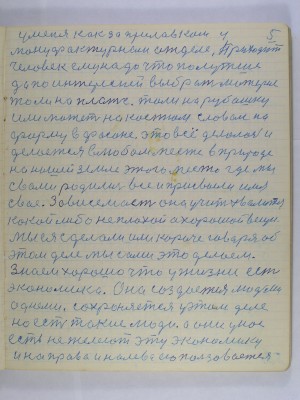 у меня как за прилавком у 5
мануфактурном отделе, Приходит
человек ему надо что получше
да по интересней выбрать материю
то ли на платье. то ли на рубашку
или может на костюм словам на
форму в фасоне. это всё делалось и
делается в любом месте в природе
на нашей земле этого места где мы
свами родились все и присвоили имя
свое. Зависимость она учит хвалится
какой либо не плохой а хорошой вещи.
мы ся сделали или короче говаря об
этом деле мы сами это делаем.
Знаем хорошо что у жизни есть
экономика. Она создается людями
одними, сохроняется у этом деле
но есть такие люди. а они у нас
есть не жалеют эту экономику
и на права и налево ею ползоваются